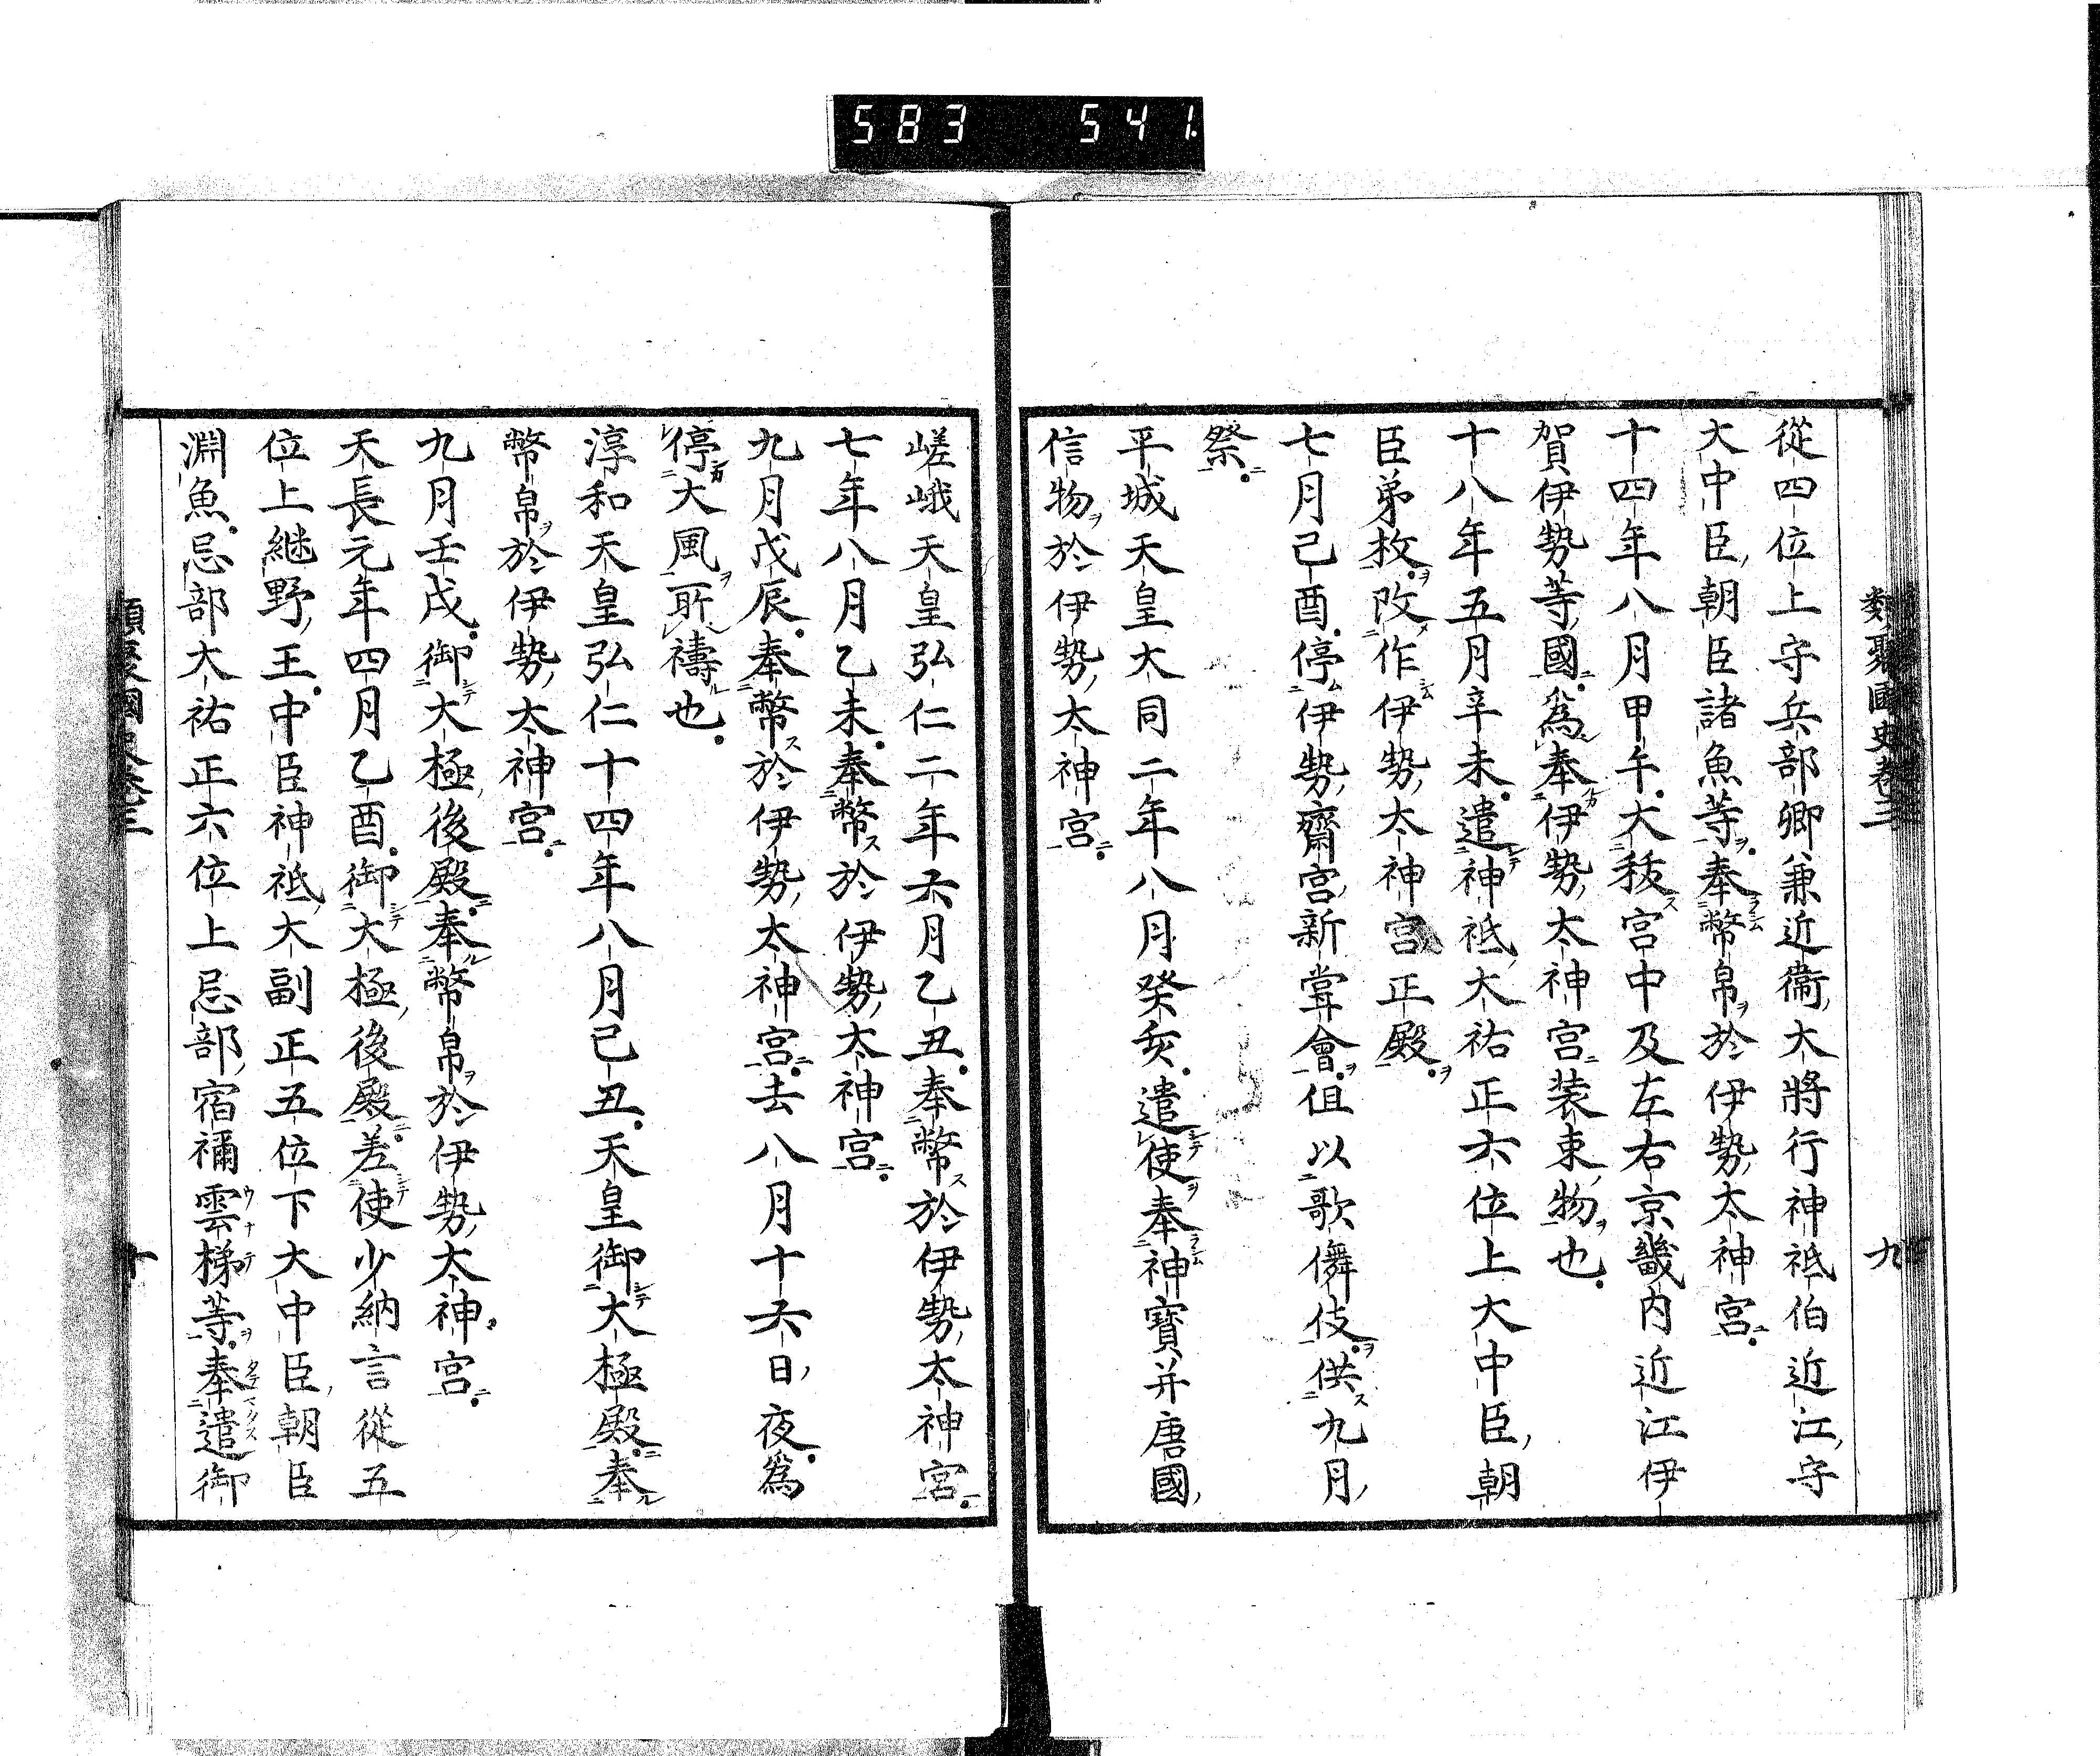 583 541
類聚國史卷三 九
從四位上守兵部卿兼近衞大將行神祇伯近江守
大中臣朝臣諸魚等奉幣帛於伊勢太神宮
十四年八月甲午大秡宮中及左右京畿内近江伊
賀伊勢等國爲奉伊勢太神宮装束物也
十八年五月辛未遣神祇大祐正六位上大中臣朝
臣弟枚改作伊勢太神宮正殿
七月己酉停伊勢齋宮新甞會但以歌儛伎供九月
祭
平城天皇大同二年八月癸亥遣使奉神寶并唐國
信物於伊勢太神宮
嵯峨天皇弘仁二年六月乙丑奉幣於伊勢太神宮
七年八月乙未奉幣於伊勢太神宮
九月戊辰奉幣於伊勢太神宮去八月十六日夜爲
停大風所禱也
淳和天皇弘仁十四年八月己丑天皇御大極殿奉
幣帛於伊勢太神宮
九月壬戌御大極後殿奉幣帛於伊勢太神宮
天長元年四月乙酉御大極後殿差使少納言從五
位上継野王中臣神祇大副正五位下大中臣朝臣
淵魚忌部大祐正六位上忌部宿禰雲梯等奉遣御
類聚國史卷三 十